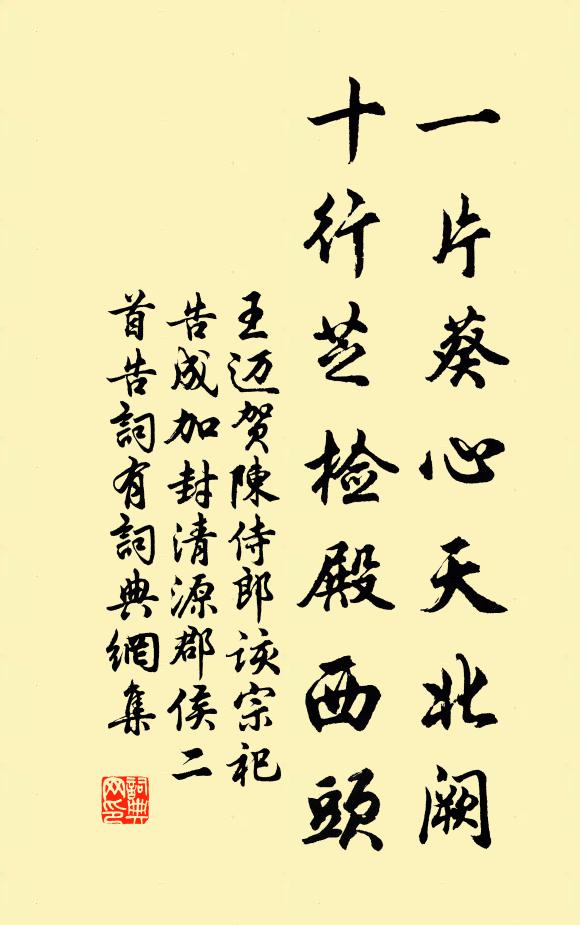 一片葵心天北阙
十行芝检殿西頭
王迈贺陳侍郎该宗祀
告成加封清源郡侯二
首告詞有詞典網集
詞典网印